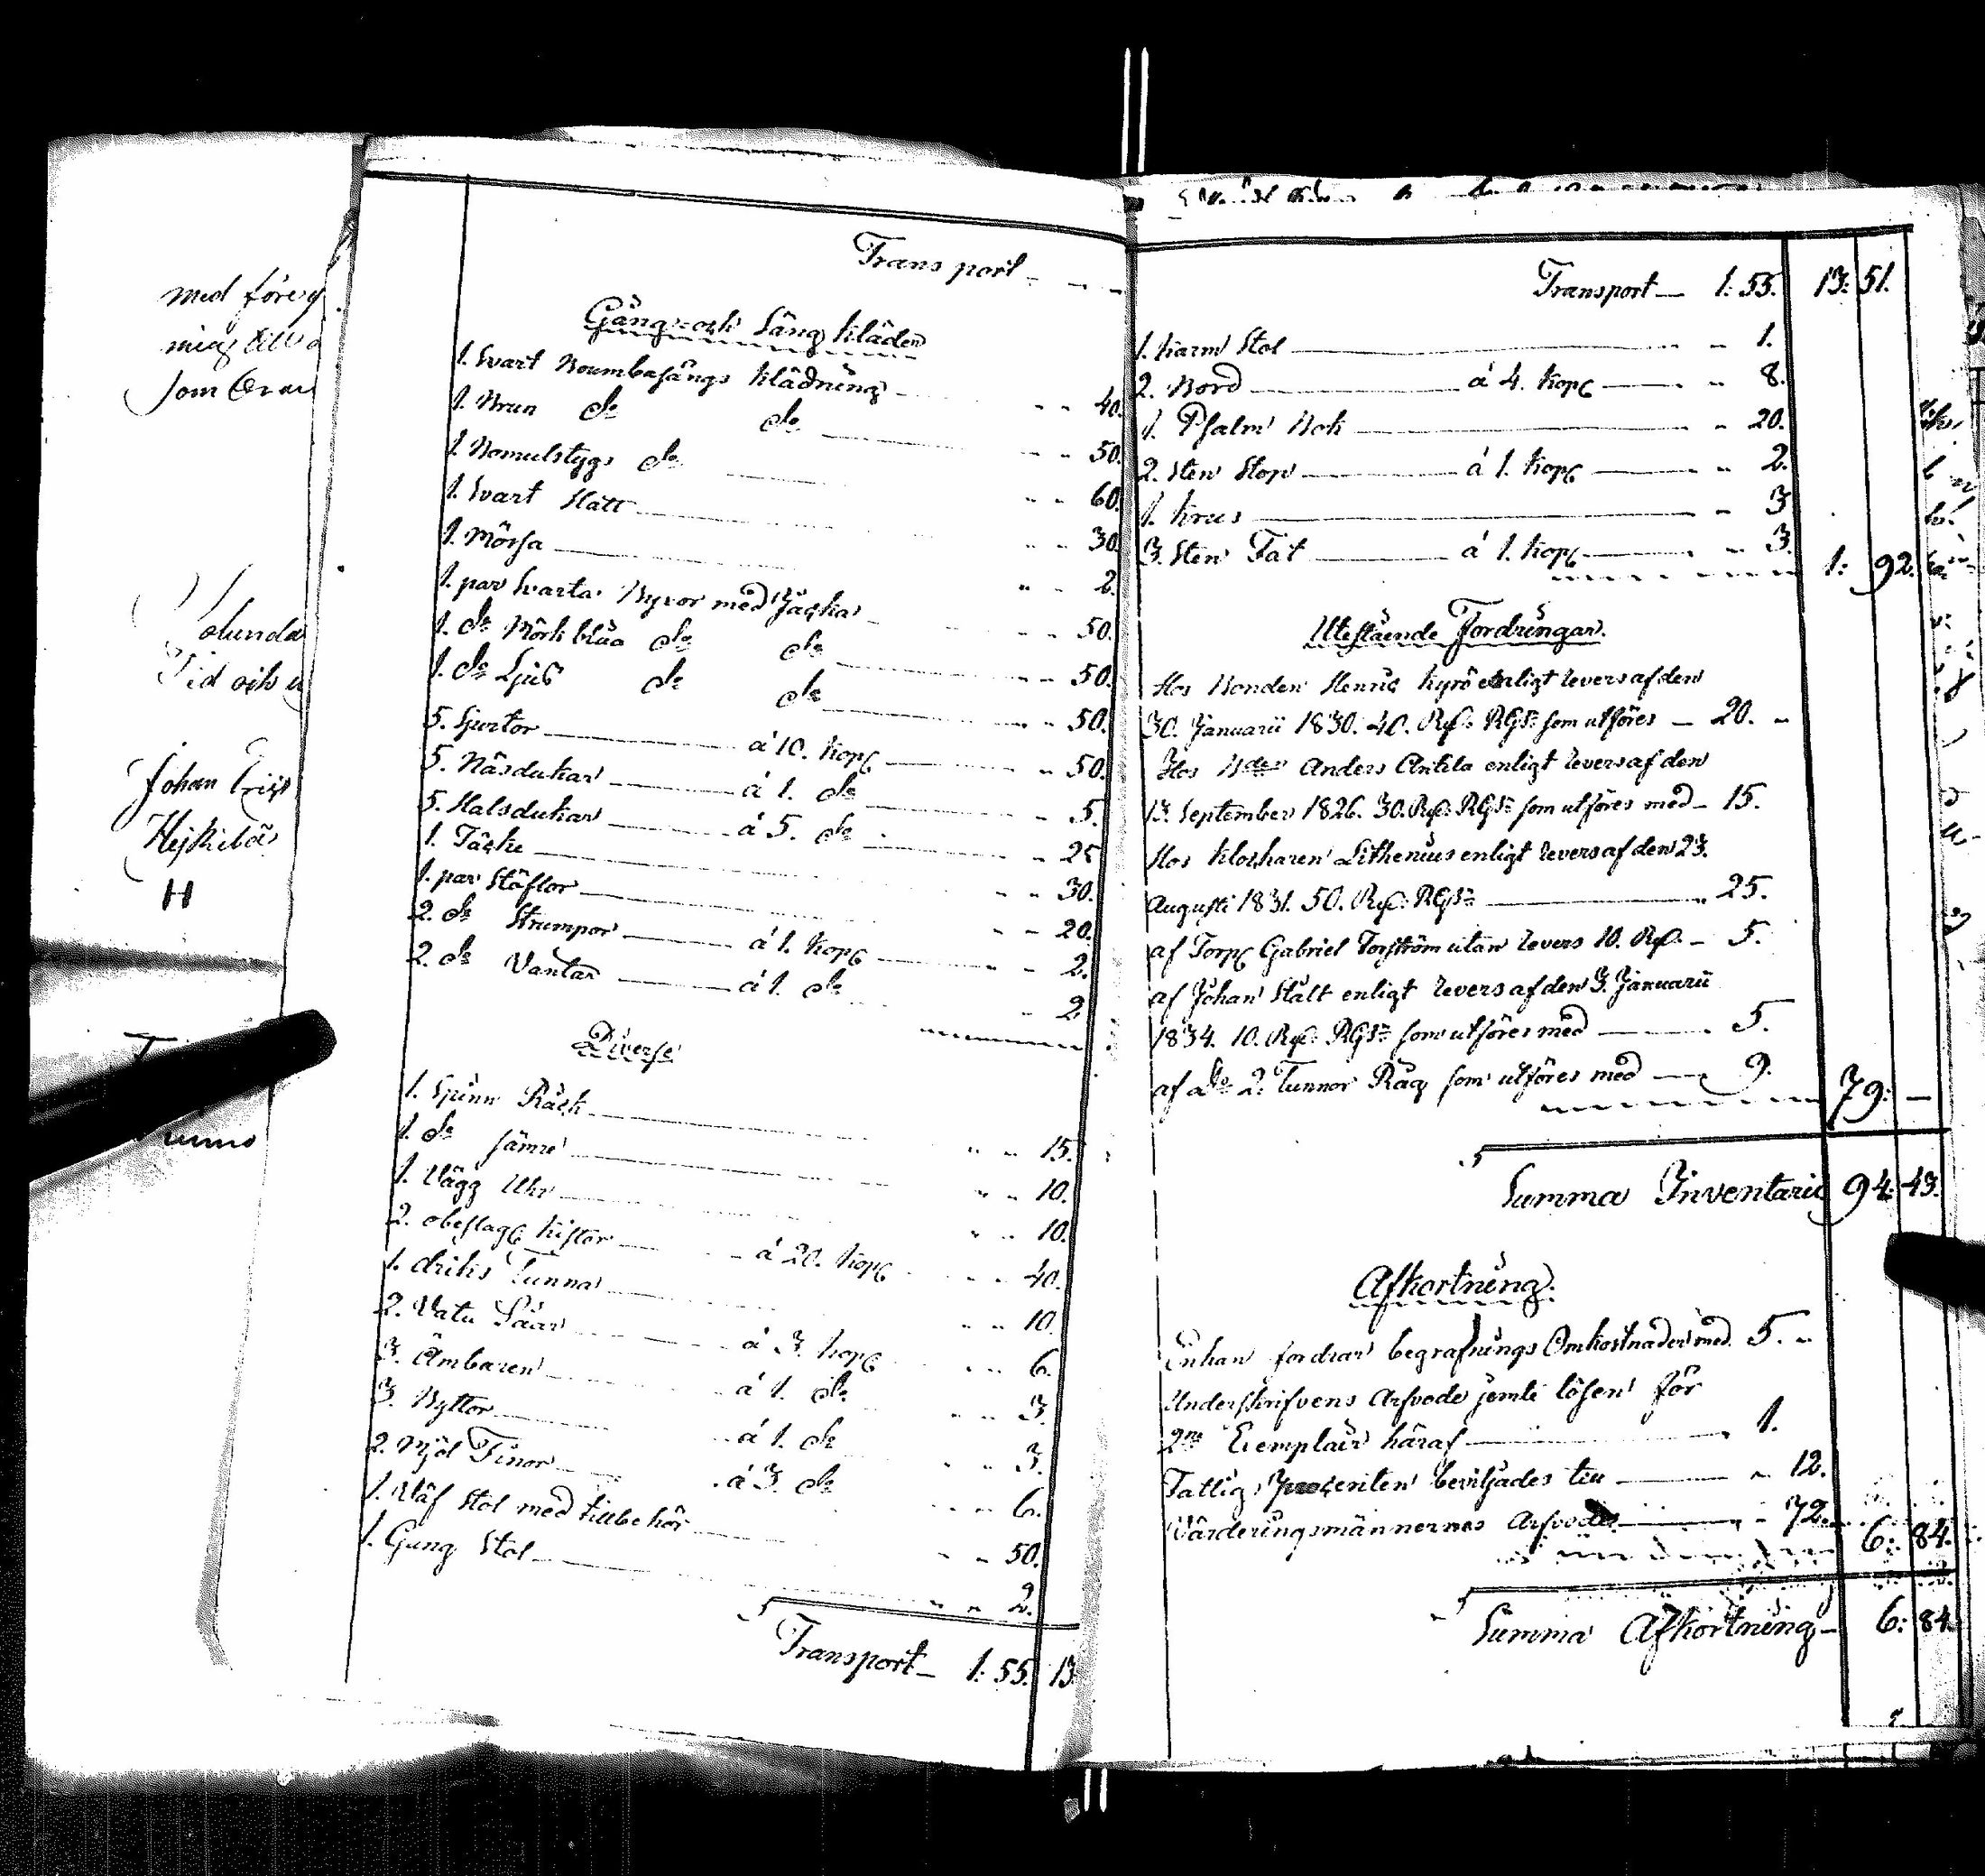 med föreg
ning till
som Öran
olunda
Tid och
Johan Erics
Hejkilä
H
Transport
Gång- och Säng kläder
1. Svart Boumbasängs klädning 40.
1. Brun do do 50.
1. Bomulstygs do 60.
1. Svart Hatt 30.
1. Mössa 2.
1. par Svarta Byxor med Jacka 50.
1. do Mörk blåa do do 50.
1. do Ljus do do 50.
5. Sjortor á 10. kop 50.
5. Näsdukar á 1. do 5.
5. Halsdukar á 5. do 25
1. Täcke 30.
1. par Stöflor 20.
2. do Strumpor á 1. kop 2.
2. do Vantar á 1. do 2
Diverse
1. Spinn Råck 15.
1. do sämre 10.
1. Vägg Uhr 10.
2. obeslag kistor á 20. kop 40.
1. driks Tunna 10.
2. Vatu Såar á 3. kop 6.
3. Ämbaren á 1. do 3.
3. Byttor á 1. do 3.
2. Mjöl Tinor á 3. do 6.
1. Väf Stol med tillbehör 50.
1. Gung Stol 2.
Transport 1. 55. 13.
Transport 1. 55. 13: 51.
1. Karm Stol 1.
2. Bord á 4. kop 8.
1. Psalm Bok 20.
2. Sten Stop á 1. kop 2.
1. Krus 3
3. Sten Fat á 1. kop 3. 1: 92.
Utestående Fordringar.
Hos Bonden Henric Kyrö enligt revers af den
30. Januarii 1830. 40. Rub. RGS som utföres 20.
Hos Anders Antila enligt revers af den
13. September 1826. 30. Rub. RGS som utföres med 15.
Hos Klockaren Lithenius enligt revers af den 23.
Augusti 1831. 50. Rub. RGS 25.
af Torp Gabriel Torström utan revers 10. Rub. 5.
af Johan Stålt enligt revers af den 3. Januarii
1834. 10. Rub. RGS som utföres med 5.
af do 2. Tunnor Råg som utföres med 9. 79: —
Summa Inventarie 94: 43.
Afkortning.
Enkan fordrar begrafnings Omkostnader med 5.
Underskrifvens Arfvode jemte lösen för
2ne Exemplair häraf 1.
Fattig procenten beviljades till 12.
Värderingsmännernes Arfvode 72. 6: 84.
Summa Afkortning 6: 84.